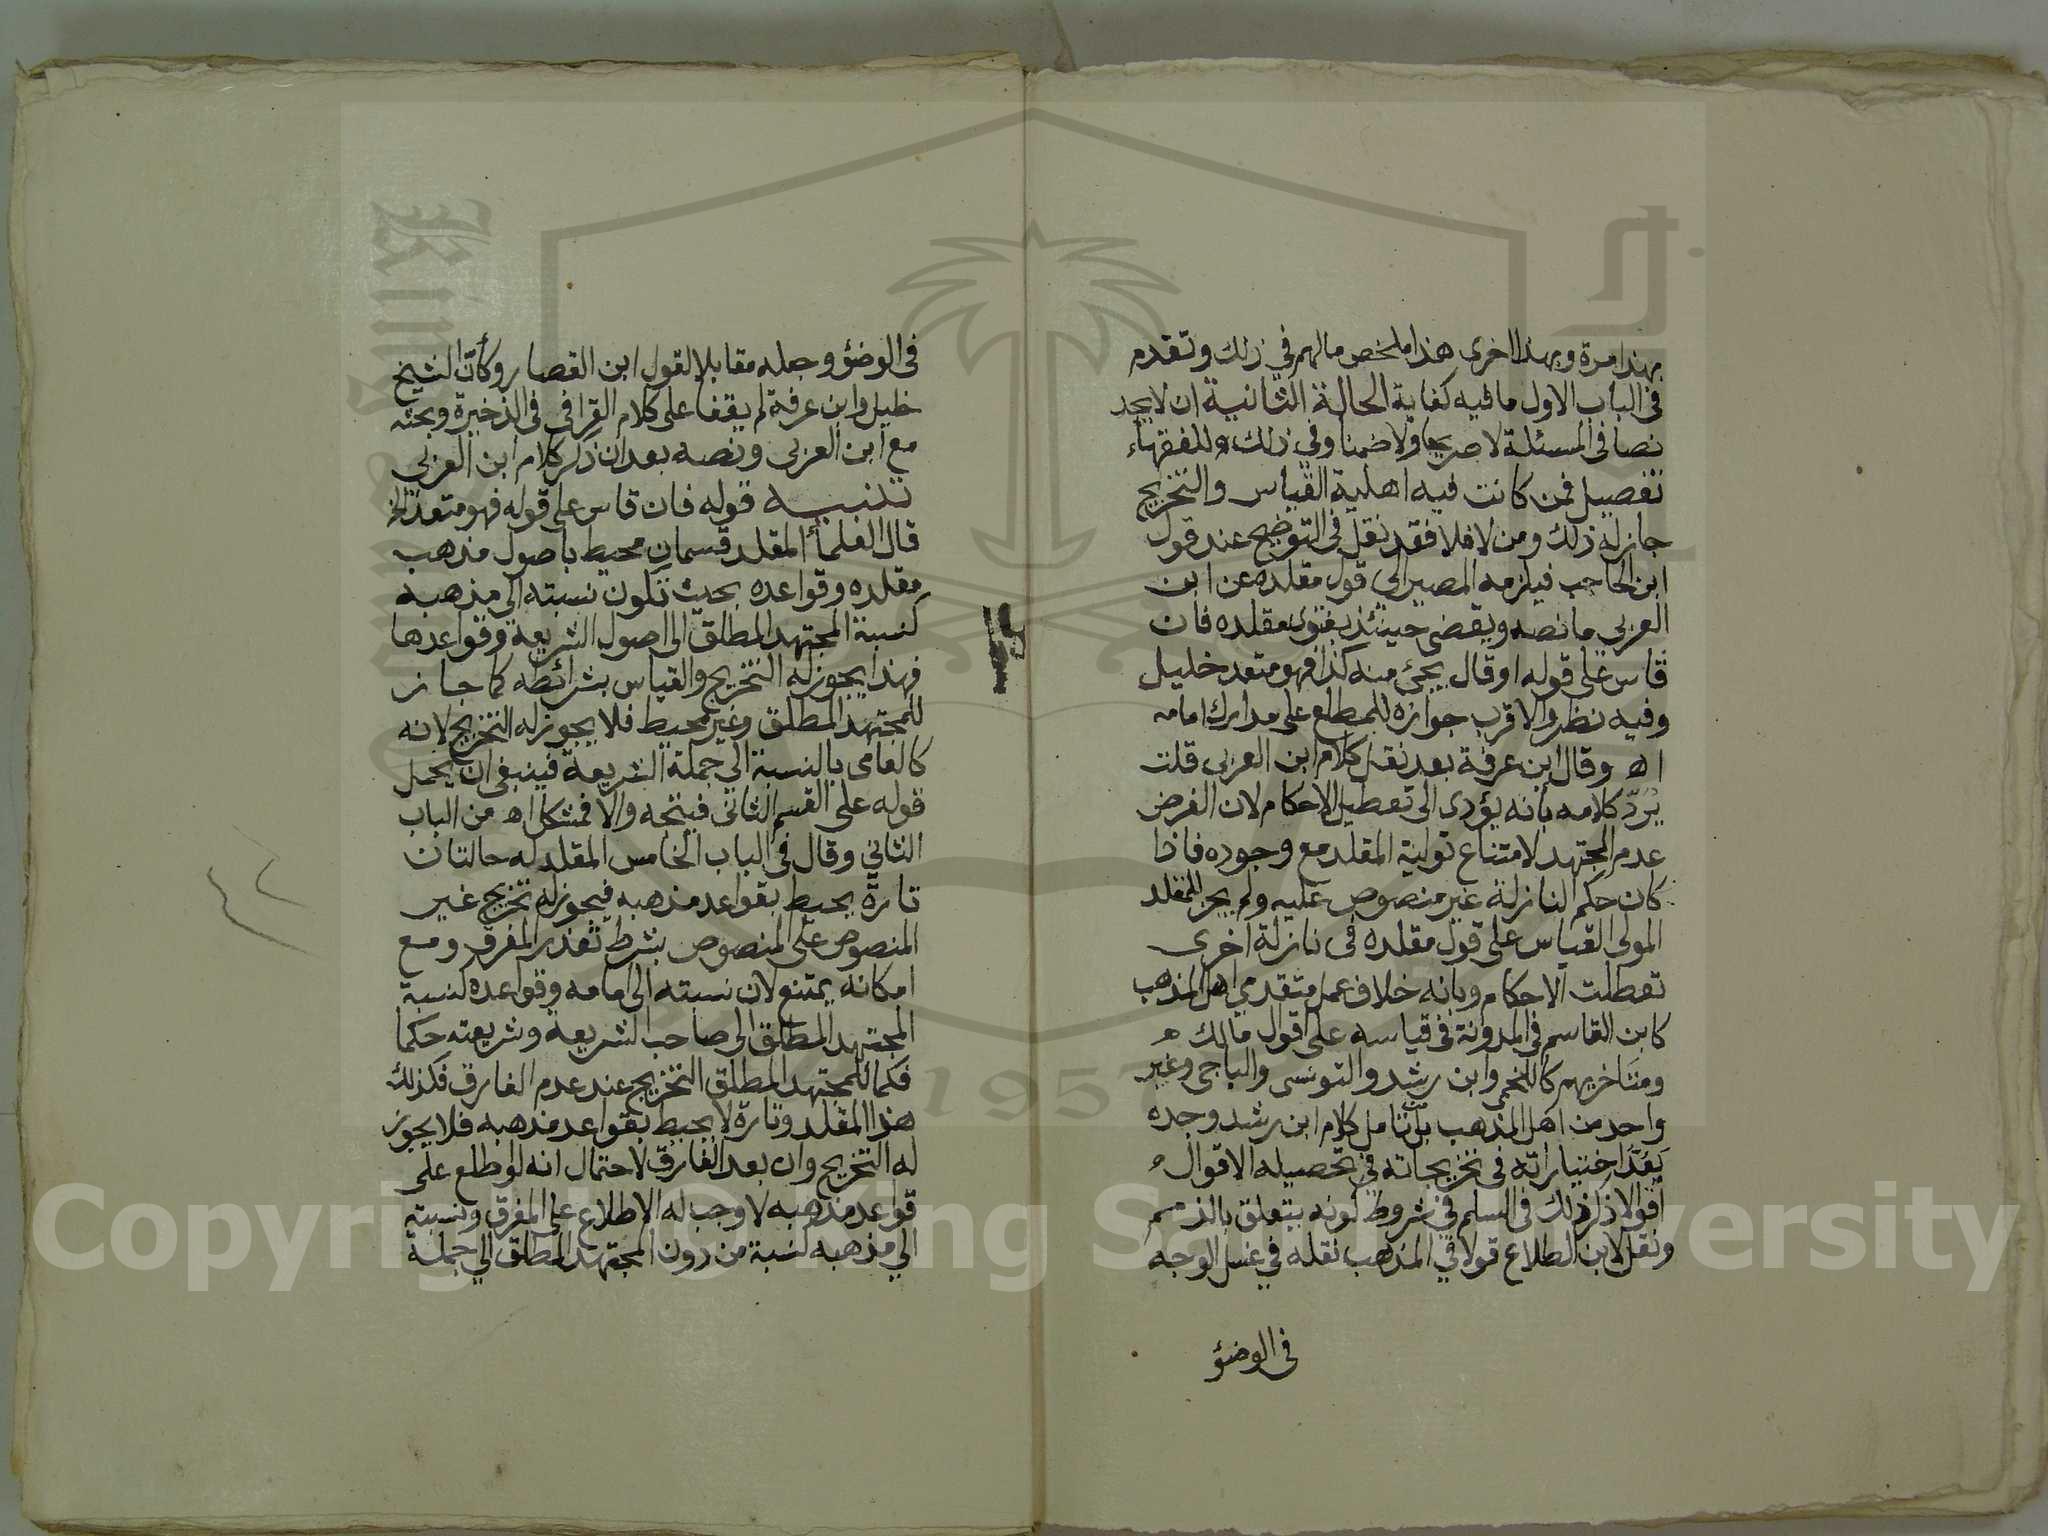 بهذا مرة وبهذا اخرى هذا ملخص مالهم في ذلك وتقدم
في الباب الاول ما فيه كفاية الحالة الثانية ان لا يجد
نصا في المسئلة لا صريحا ولا ضمنا وفي ذلك للفقهاء
تفصيل فمن كانت فيه اهلية القياس والتخريج
جاز له ذلك ومن لا فلا فقد نقل في التوضيح عند قول
ابن الحاجب فيلزمه المصير الى قول مقلده عن ابن
العربي ما نصه ويقضى حينئذ بفتوى مقلده فان
قاس على قوله او قال يجئ منه كذا فهو متعد خليل
وفيه نظر والاقرب جوازه للمطلع على مدارك امامه
اه وقال ابن عرفة بعد نقل كلام ابن العربي قلت
يُرَدّ كلامه بأنه يؤدى الى تعطيل الاحكام لان الفرض
عدم المجتهد لامتناع تولية المقلد مع وجوده فاذا
كان حكم النازلة غير منصوص عليه ولم يجز للمقلد
المولى القياس على قول مقلده في نازلة اخرى
تعطلت الاحكام وبانه خلاف عمل متقدمي اهل المذهب
كابن القاسم في المدونة في قياسه على اقوال مالك
ومتأخريهم كاللخمي وابن رشد والتونسى والباجى وغير
واحد من اهل المذهب بل تأمل كلام ابن رشد وجده
يَعُدّ اختياراته في تخريجاته في تحصيله الاقوال
اقولا ذكر ذلك في السلم في شروط كونه يتعلق بالذمم
ونقل لابن الطلاع قولا في المذهب نقله في غسل الوجه
في الوضؤ
في الوضؤ وجعله مقابلا لقول ابن القصار وكأنّ الشيخ
خليل وابن عرفة لم يقفا على كلام القرافي في الذخيرة وبحثه
مع ابن العربى ونصه بعد ان ذكر كلام ابن العربى
تنبيه قوله فان قاس على قوله فهو متعد الخ
قال العلمأ المقلد قسمان محيط باصول مذهب
مقلده وقواعده بحيث تكون نسبته الى مذهبه
كنسبة المجتهد المطلق الى اصول الشريعة وقواعدها
فهذا يجوز له التخريج والقياس بشرائطه كما جاز
للمجتهد المطلق وغير محيط فلا يجوز له التخريج لانه
كالعامى بالنسبة الى جملة الشريعة فينبغى ان يحمل
قوله على القسم الثاني فيتجه والا فمشكل اه من الباب
الثاني وقال في الباب الخامس المقلد له حالتان
تارة يحيط بقواعد مذهبه فيجوز له تخريج غير
المنصوص على المنصوص بشرط تعذر الفرق ومع
امكانه يمتنع لان نسبته الى امامه وقواعده كنسبة
المجتهد المطلق الى صاحب الشريعة وشريعته حكما
فكما للمجتهد المطلق التخريج عند عدم الفارق فكذلك
هذا المقلد وتارة لا يحيط بقواعد مذهبه فلا يجوز
له التخريج وان بعد الفارق لاحتمال انه لو اطلع على
قواعد مذهبه لاوجب له الاطلاع على الفرق ونسبته
الى مذهبه كنسبة من دون المجتهد المطلق الى جملة
Copyright © King Saud University
1957